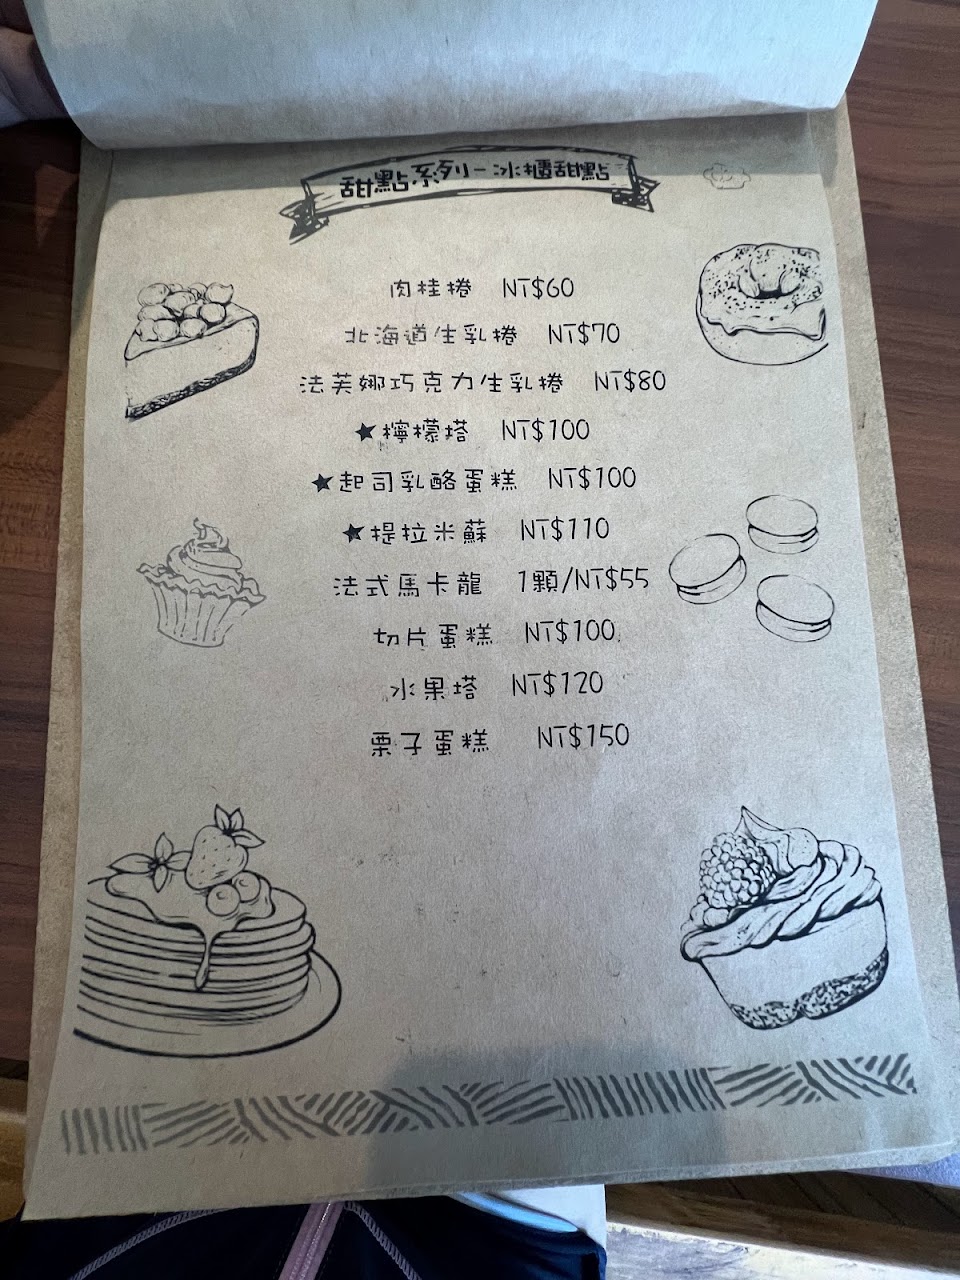 甜點系列-冰櫃甜點
肉桂捲 NT$60
北海道生乳捲 NT$70
法芙娜巧克力生乳捲 NT$80
★檸檬塔 NT$100
★起司乳酪蛋糕 NT$100
★提拉米蘇 NT$110
法式馬卡龍 1顆/NT$55
切片蛋糕 NT$100
水果塔 NT$120
栗子蛋糕 NT$150